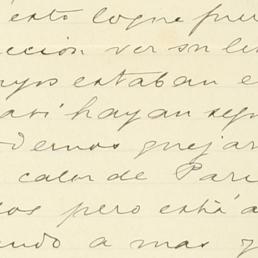 esto logre pue
cción ver su le
uyos estaban e
así hayan segu
demos quejar
calor de Pari
os pero está a
endo a mas y